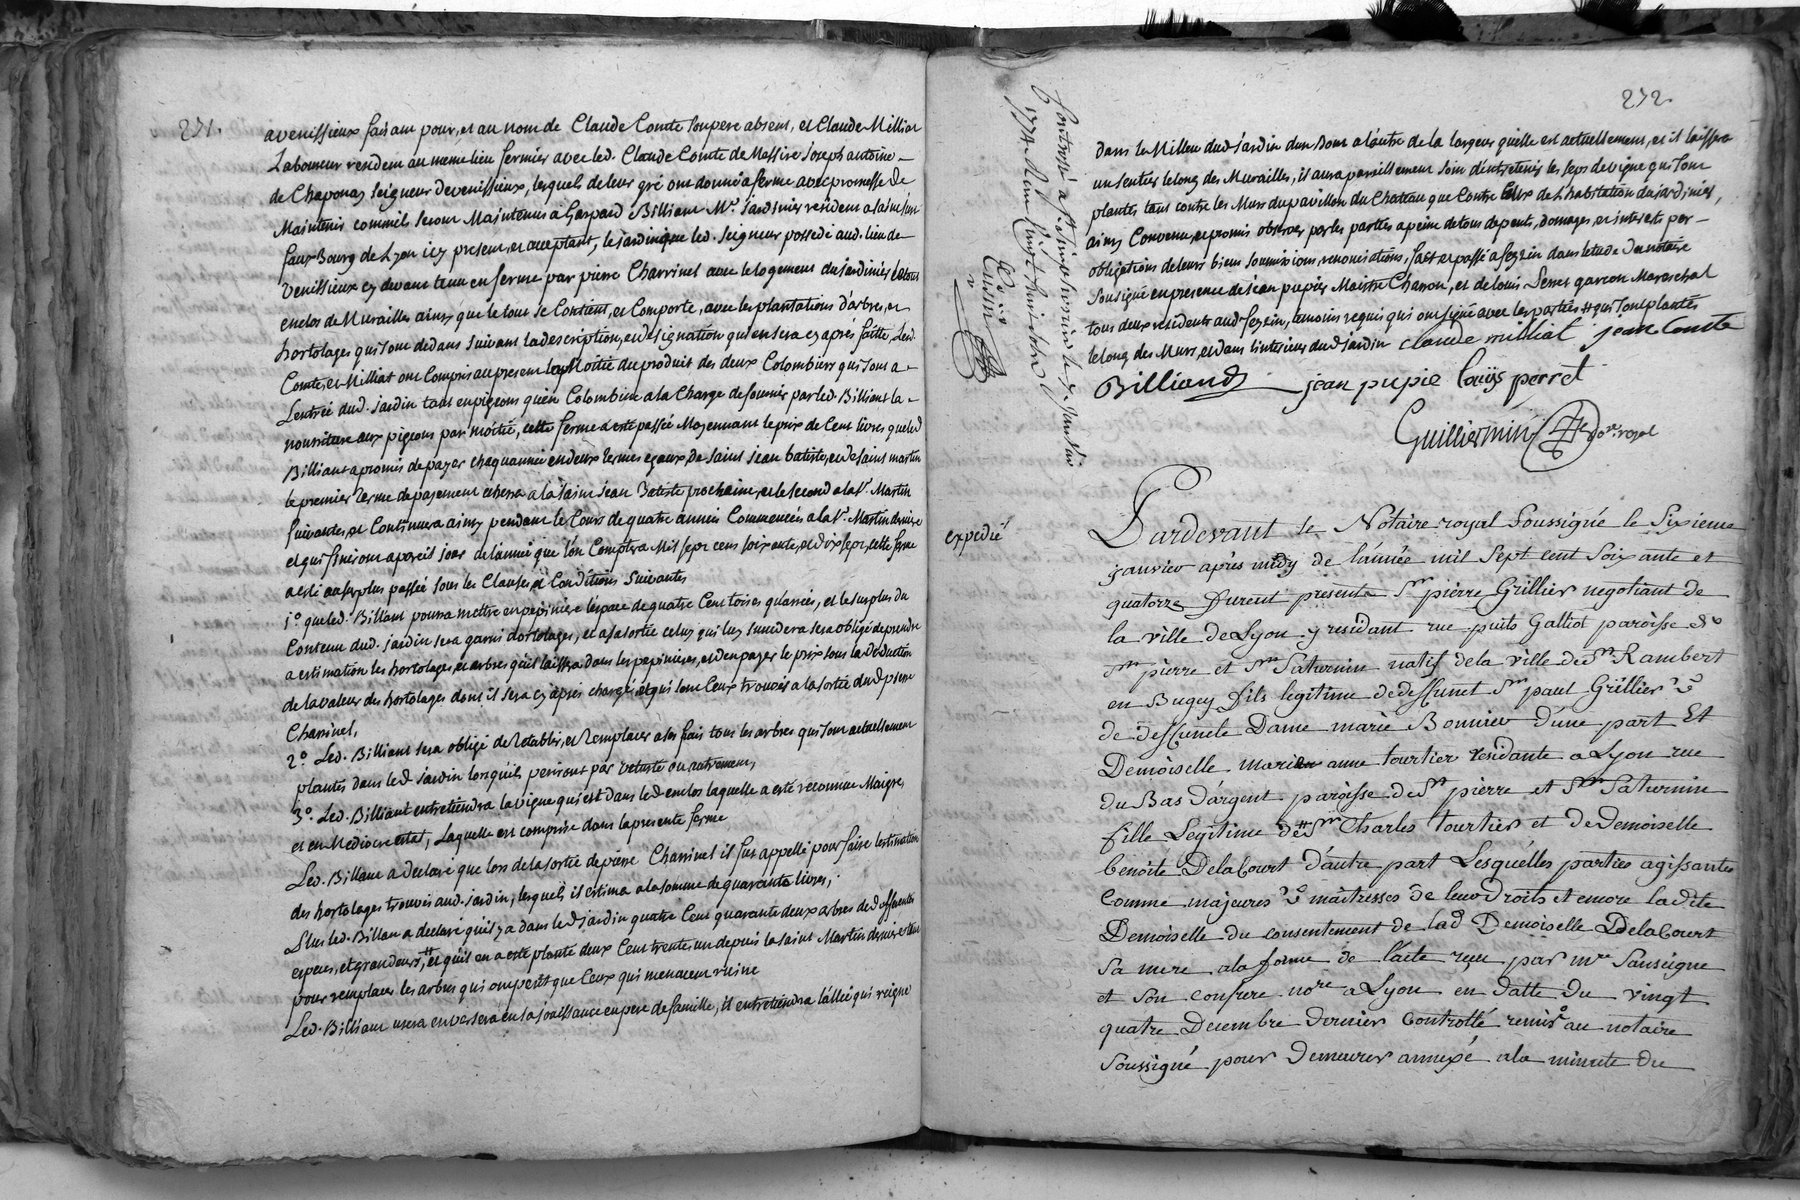 271.
avenissieux faisant pour, et au nom de Claude Comte son pere absent, et Claude Milliat
Laboureur residant au meme lieu fermier avec led. Claude Comte de Messire Joseph antoine
de Chaponay seigneur devenissieux, lesquels de leur gré ont donné a ferme avec promesse de
Maintenir comme ils seront Maintenus a Gaspard Billiant Mr. Jardinier residant a la
faux Bourg de Lyon icy present, et acceptant, le jardin que led. seigneur possede aud. lieu de
venissieux cy devant tenu en ferme par pierre Charrinel avec le logement du jardinier le tout
enclos de Murailles ainsy que le tout se Contient, et Comporte, avec les plantations d'arbres, et
hortolages qui sont dedans suivant la description, et designation qui en sera cy apres faitte, Led.
Comte, et Milliat ont Compris au present la Moitié du produit des deux Colombiers qui sont a
L'entrée dud. jardin tant en pigeons qu'en Colombine a la Charge de fournir par led. Billiant la
nourriture aux pigeons par moitié, cette ferme a esté passée Moyennant le prix de Cent livres que led
Billiant a promis de payer chaque année en deux termes egaux de saint jean batiste, et de saint martin
le premier terme de payement echerra a la saint jean Batiste prochaine, et le second a la St. Martin
suivante, et Continuera ainsy pendant le Cours de quatre années Commencées a la St. Martin derniere
et qui finiront a pareil jour de l'année que l'on Comptera Mil sept cens soixante, et dix sept, cette ferme
a esté au surplus passée sous les Clauses, et Conditions suivantes
1°. que led. Billiant pourra mettre en pepiniere l'espace de quatre Cent toises quarrées, et le surplus du
Contenu dud. jardin sera garni d'ortolages, et a sa sortie celuy qui luy succedera sera obligé de prendre
a estimation les hortolages, et arbres qu'il laissera dans les pepinieres, et d'en payer le prix sous la deduction
de la valeur des hortolages dont il sera cy apres chargé, et qui sont Ceux trouvés a la sortie dud. pierre
Charrinel,
2°. Led. Billiant sera obligé de Retablir, et Remplacer a ses frais tous les arbres qui sont actuellement
plantés dans led jardin lorsqu'ils periront par vetusté ou autrement,
3°. Led. Billiant entretiendra la vigne qui est dans led enclos laquelle a esté reconnüe Maigre,
et en Mediocre estat, Laquelle est comprise dans la presente ferme
Led. Billiant a declaré que lors de la sortie de pierre Charrinel il fut appellé pour faire l'estimation
des hortolages trouvés aud. jardin, lesquels il estima a la somme de quarante livres,
Plus led. Billiant a declaré qu'il y a dans led jardin quatre Cent quarante deux arbres de differentes
especes, et grandeurs, # et qu'il en a esté planté deux Cent trente un depuis la saint Martin derniere
pour remplacer les arbres qui ont peri et que Ceux qui menacent ruine
Led. Billiant usera en sa jouissance en pere de famille, il entretiendra l'allée qui regne
272.
dans le Millieu dud jardin d'un Bout a l'autre de la largeur qu'elle est actuellement, et il laissera
un sentier le long des Murailles, il aura pareillement soin d'entretenir les seps de vigne qui sont
plantés tant contre les Murs du pavillon du Chateau que Contre Ceux de L'habitation du jardinier,
ainsy Convenu, et promis observer par les parties a peine de tous depens, domages, et interets par
obligations de leurs biens soumissions, renonciations, fait et passé a feyzin dans l'etude du notaire
soussigné en presence de jean pupier Maistre Charron, et de louis Perret garcon Marechal
tous deux residents aud. feyzin, temoins requis qui ont signé avec les parties # qui sont plantés
le long des Murs, et dans l'interieur dud jardin claude milliat jean Comte
Billiand jean pupie louis perret
Guilliermin no.re royal
Controllé a St. Simphorien le 7. Janvier
1774. Reçu
Cusin
expedié
Pardevant le Notaire royal Soussigné le Sixieme
janvier après midy de l'année mil Sept cent Soixante et
quatorze Furent presents Sr. pierre Grillier negotiant de
la ville de Lyon y residant rue puits Gaillot paroisse de
St. pierre et St. Saturnin natif de la ville de St. Rambert
en Bugey fils legitime de deffunct Sr. paul Grillier &
de deffuncte Dame marie Bonnier d'une part Et
Demoiselle marie anne tourtier residante a Lyon rue
du Bas d'argent paroisse de St. pierre et St. Saturnin
fille Legitime de Sr. Charles tourtier et de Demoiselle
benoite Delacourt d'autre part Lesquelles parties agissantes
Comme majeures & maîtresses de leur Droits et encore ladite
Demoiselle du consentement de lad. Demoiselle Delacourt
sa mere a la forme de l'acte reçu par mre. Sauseigne
et son confrere nore. a Lyon en datte du vingt
quatre Decembre dernier Controllé remis au notaire
Soussigné pour demeurer annexé a la minute du